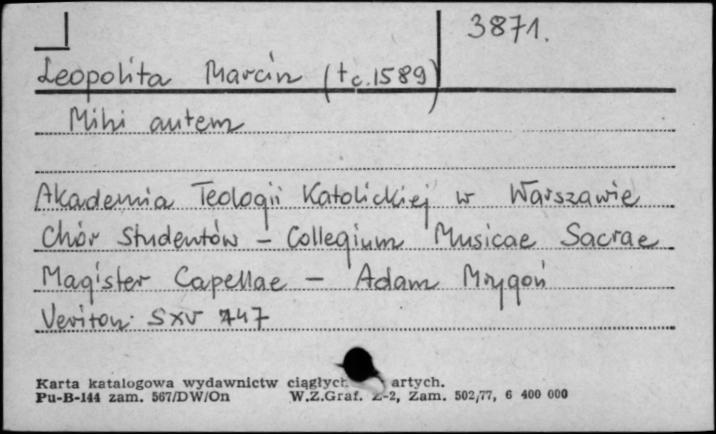 3871.
Leopolita Marcin († c. 1589)
Mihi autem
Akademia Teologii Katolickiej w Warszawie
Chór Studentów – Collegium Musicae Sacrae
Magister Capellae – Adam Mrygoń
Veriton SXV 747
Karta katalogowa wydawnictw ciągłych artych.
Pu-B-144 zam. 567/DW/On W.Z.Graf. Z-2, Zam. 502/77, 6 400 000